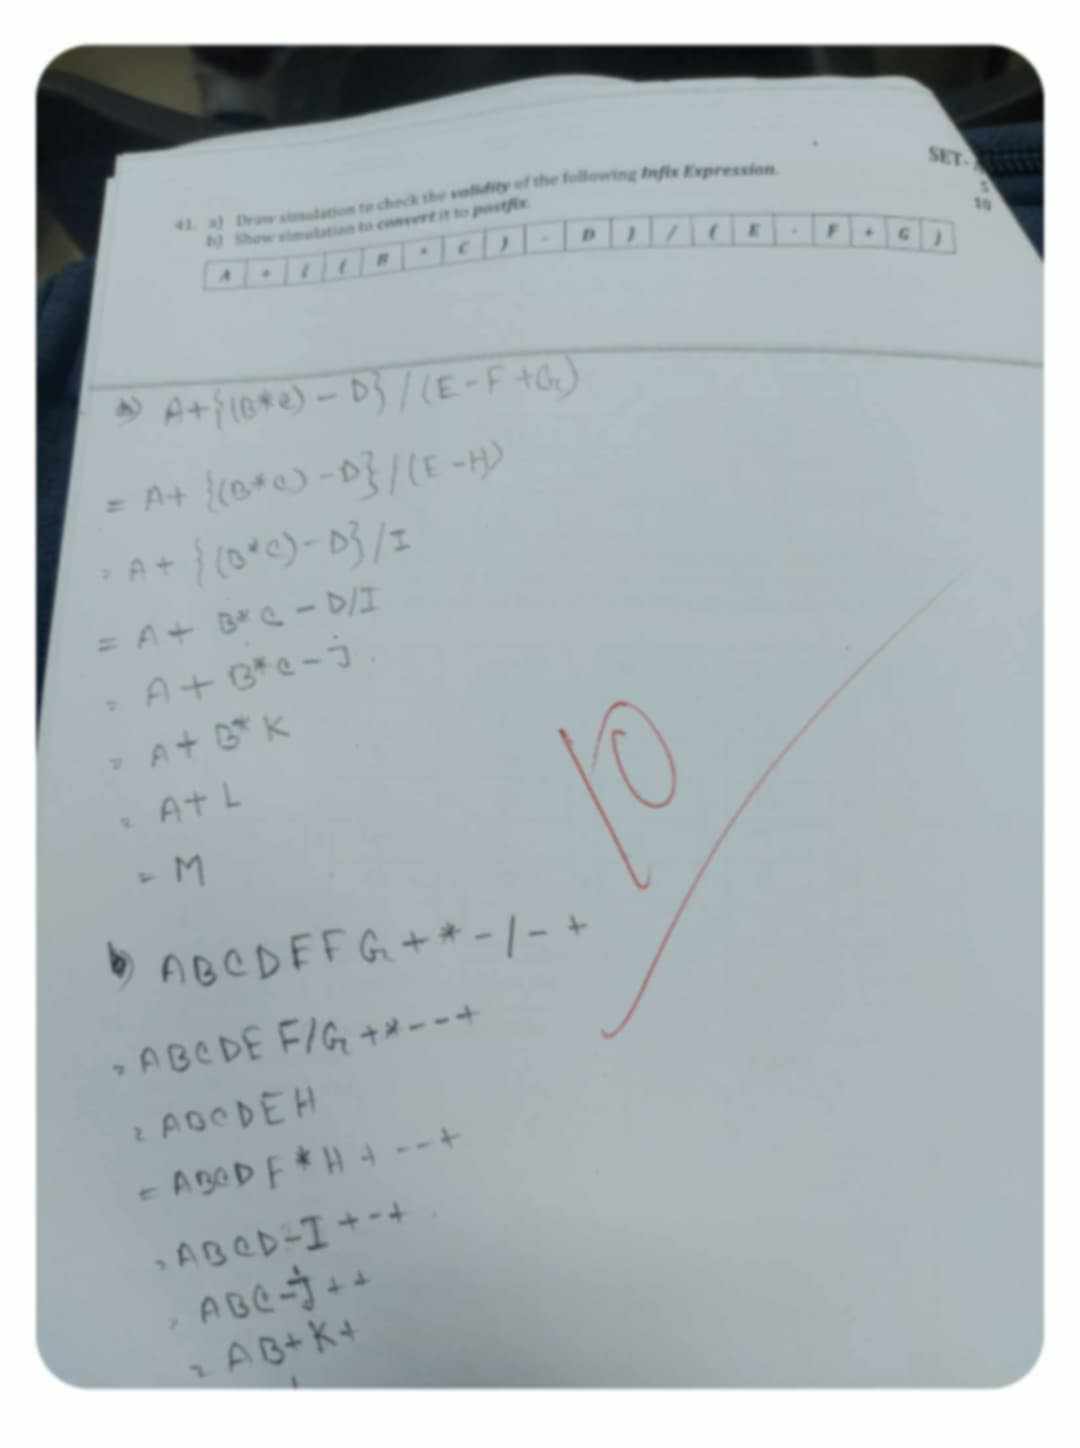 SET-
41. a) Draw simulation to check the validity of the following Infix Expression. 5
b) Show simulation to convert it to postfix. 10
A + { ( B * C ) - D } / ( E - F + G )
a) A+{(B*C)-D}/(E-F+G)
= A+ {(B*C)-D}/(E-H)
= A+ {(B*C)-D}/I
= A+ B*C-D/I
= A+ B*C-j
= A+ B*K
= A+L
= M
10
b) ABCDEFG+*-/-+
= ABCDEF/G+*--+
= ABCDEH
= ABCDF*H+--+
= ABCD-I+-+
= ABC-j++
= AB+K+